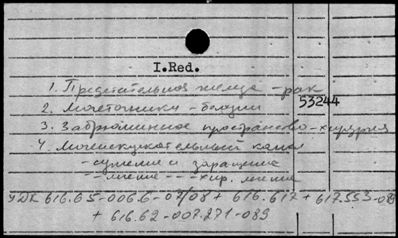 I.Red.
1. Предстательная железа - рак
2. Мочеточники - болезни
53244
3. Забрюшинное пространство - хирургия
4. Мочеиспускательный канал
- сужение и заращение
- " - лечение - " - хир. лечение
УДК 616.65-006.6-07/08 + 616.617 + 617.553-089
+ 616.62-007.271-089